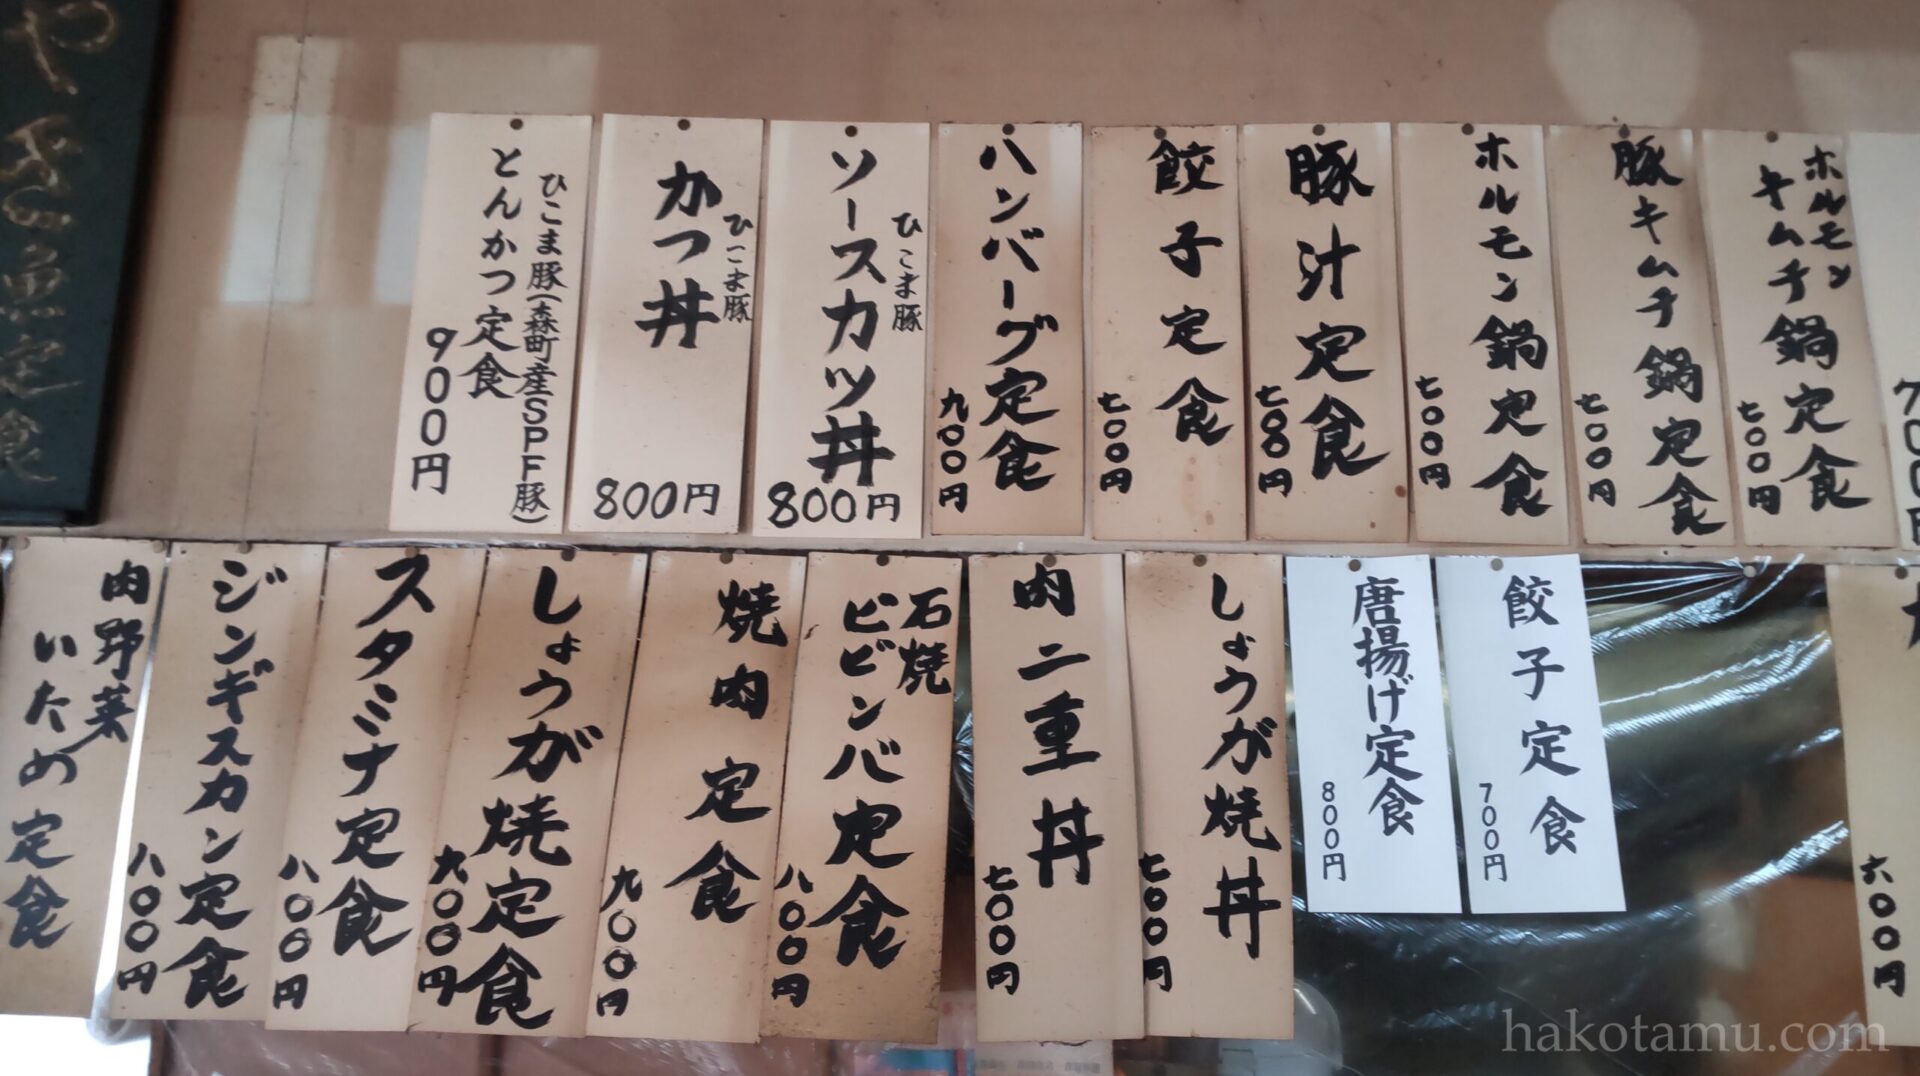 やき魚定食
ひこま豚(森町産SPF豚)
とんかつ定食
900円
ひこま豚
かつ丼
800円
ひこま豚
ソースカツ丼
800円
ハンバーグ定食
九〇〇円
餃子定食
七〇〇円
豚汁定食
七〇〇円
ホルモン鍋定食
七〇〇円
豚キムチ鍋定食
七〇〇円
ホルモン
キムチ鍋定食
七〇〇円
700円
肉野菜
いため定食
ジンギスカン定食
八〇〇円
スタミナ定食
八〇〇円
しょうが焼定食
九〇〇円
焼肉定食
九〇〇円
石焼
ビビンバ定食
八〇〇円
肉二重丼
七〇〇円
しょうが焼丼
七〇〇円
唐揚げ定食
800円
餃子定食
700円
六〇〇円
hakotamu.com